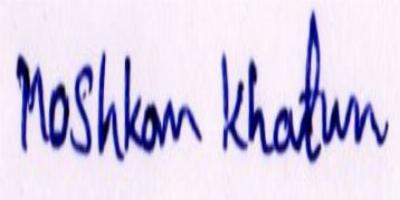 Moshkan Khatun